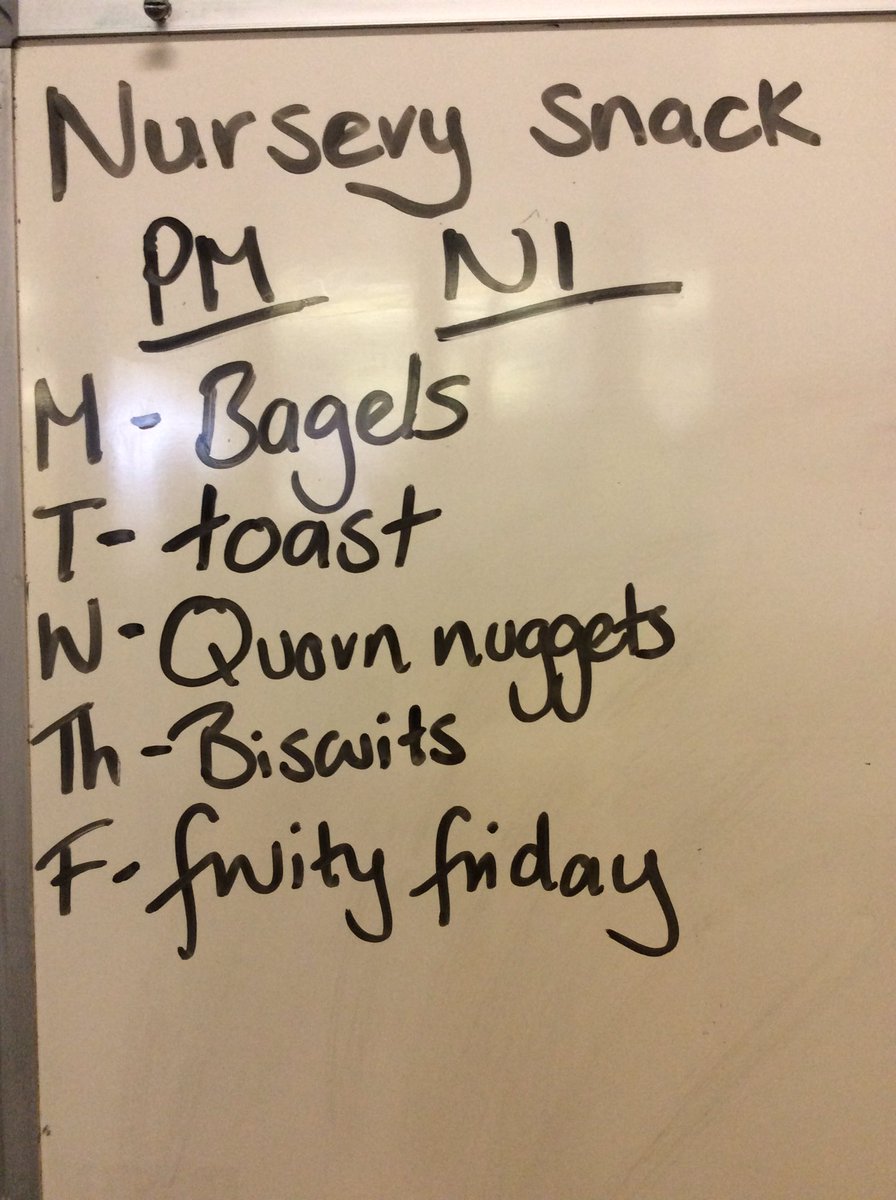 Nursery snack
PM N1
M - Bagels
T - toast
W - Quorn nuggets
Th - Biscuits
F - fruity friday